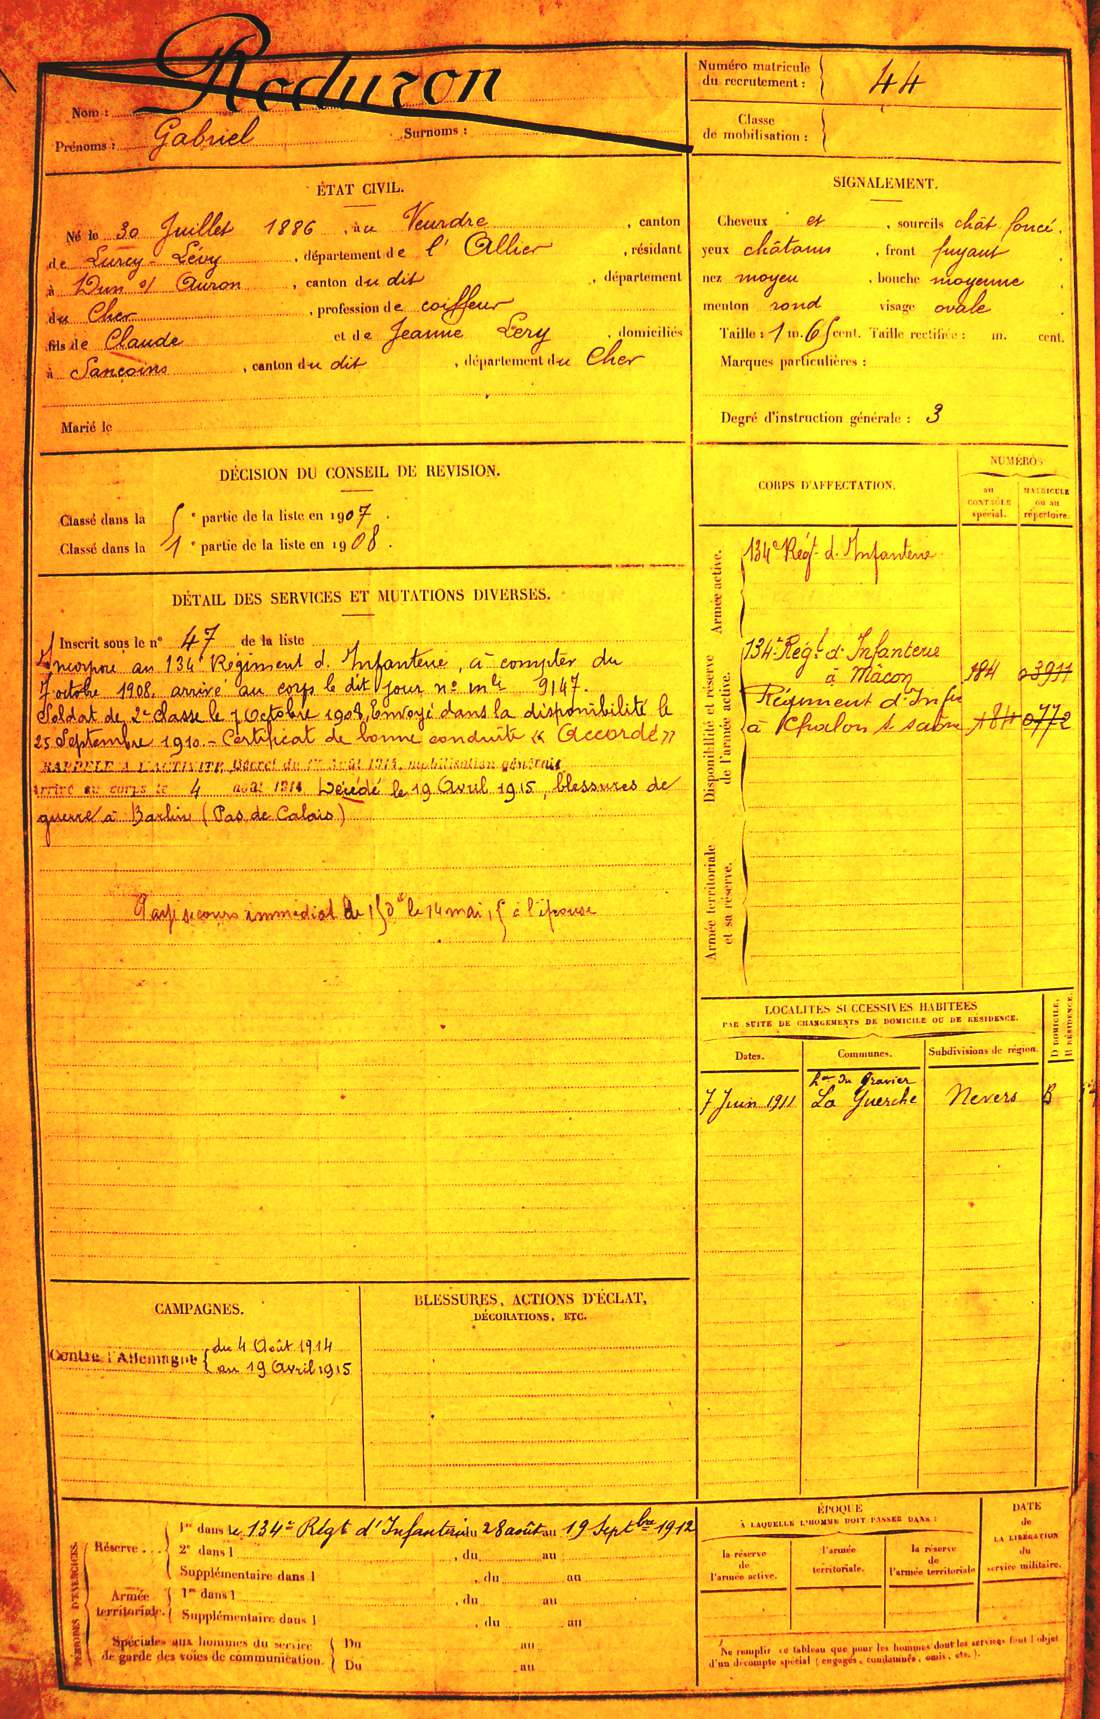 Nom : Roduron
Prénoms : Gabriel Surnoms :
Numéro matricule
du recrutement : 44
Classe
de mobilisation :
ÉTAT CIVIL.
Né le 30 Juillet 1886, à u Veurdre, canton
de Lurcy-Lévy, département de l'Allier, résidant
à Dun s/ Auron, canton du dit, département
du Cher, profession de coiffeur
fils de Claude et de Jeanne Lery, domiciliés
à Sancoins, canton du dit, département du Cher
Marié le
SIGNALEMENT.
Cheveux et, sourcils chât foncé.
yeux châtains, front fuyant
nez moyen, bouche moyenne
menton rond visage ovale
Taille : 1 m. 65 cent. Taille rectifiée : m. cent.
Marques particulières :
Degré d'instruction générale : 3
DÉCISION DU CONSEIL DE REVISION.
Classé dans la 5e partie de la liste en 1907.
Classé dans la 1e partie de la liste en 1908.
DÉTAIL DES SERVICES ET MUTATIONS DIVERSES.
Inscrit sous le n° 47 de la liste
Incorporé au 134e Régiment d'Infanterie, à compter du
7 octobre 1908, arrivé au corps le dit jour n° mle 9147.
Soldat de 2e classe le 7 Octobre 1908, Envoyé dans la disponibilité le
25 Septembre 1910. - Certificat de bonne conduite « Accordé »
RAPPELÉ A L'ACTIVITÉ, Décret du 1er août 1914, mobilisation générale
Arrivé au corps le 4 août 1914 Décédé le 19 Avril 1915, blessures de
guerre à Barlin (Pas de Calais)
Payé secours immédiat de 150 le 14 mai 15 à l'épouse
CORPS D'AFFECTATION.
NUMÉROS
au
CONTRÔLE
spécial.
MATRICULE
ou au
répertoire.
Armée active.
134e Régt d'Infanterie
Disponibilité et réserve
de l'armée active.
134e Régt d'Infanterie
à Mâcon 184 03911
Régiment d'Infie
à Chalon s saône 184 0772
Armée territoriale
et sa réserve.
LOCALITÉS SUCCESSIVES HABITÉES
PAR SUITE DE CHANGEMENTS DE DOMICILE OU DE RÉSIDENCE.
D DOMICILE,
R RÉSIDENCE.
Dates. Communes. Subdivisions de région.
du Gravier
7 Juin 1911 La Guerche Nevers
CAMPAGNES.
Contre l'Allemagne du 4 Août 1914
au 19 Avril 1915
BLESSURES, ACTIONS D'ÉCLAT,
DÉCORATIONS, ETC.
PÉRIODES D'EXERCICES.
Réserve... 1re dans le 134e Régt d'Infanterie du 28 août au 19 Septbre 1912
2e dans l , du au
Supplémentaire dans l , du au
Armée
territoriale. 1re dans l , du au
Supplémentaire dans l , du au
Spéciales aux hommes du service
de garde des voies de communication. Du au
Du au
ÉPOQUE
À LAQUELLE L'HOMME DOIT PASSER DANS :
la réserve
de
l'armée active.
l'armée
territoriale.
la réserve
de
l'armée territoriale
DATE
de
LA LIBÉRATION
du
service militaire.
Ne remplir ce tableau que pour les hommes dont les services font l'objet
d'un décompte spécial (engagés, condamnés, omis, etc.).